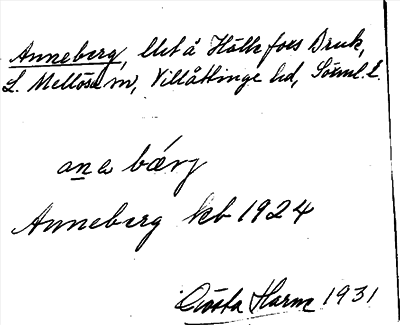 Anneberg, llet å Hällefors Bruk,
L. Mellösa sn, Villåttinge hd, Sörml. l.
anabärj
Anneberg kb 1924
Gösta Harm 1931